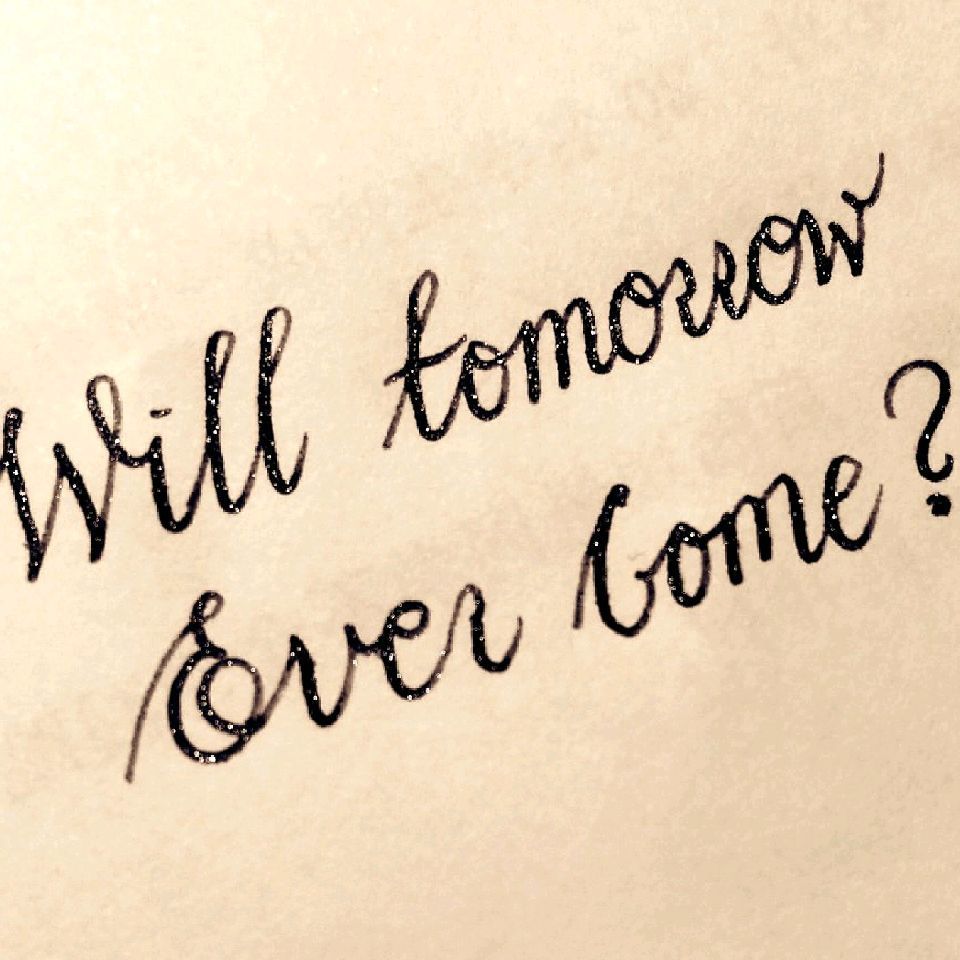 Will tomorrow
Ever Come?